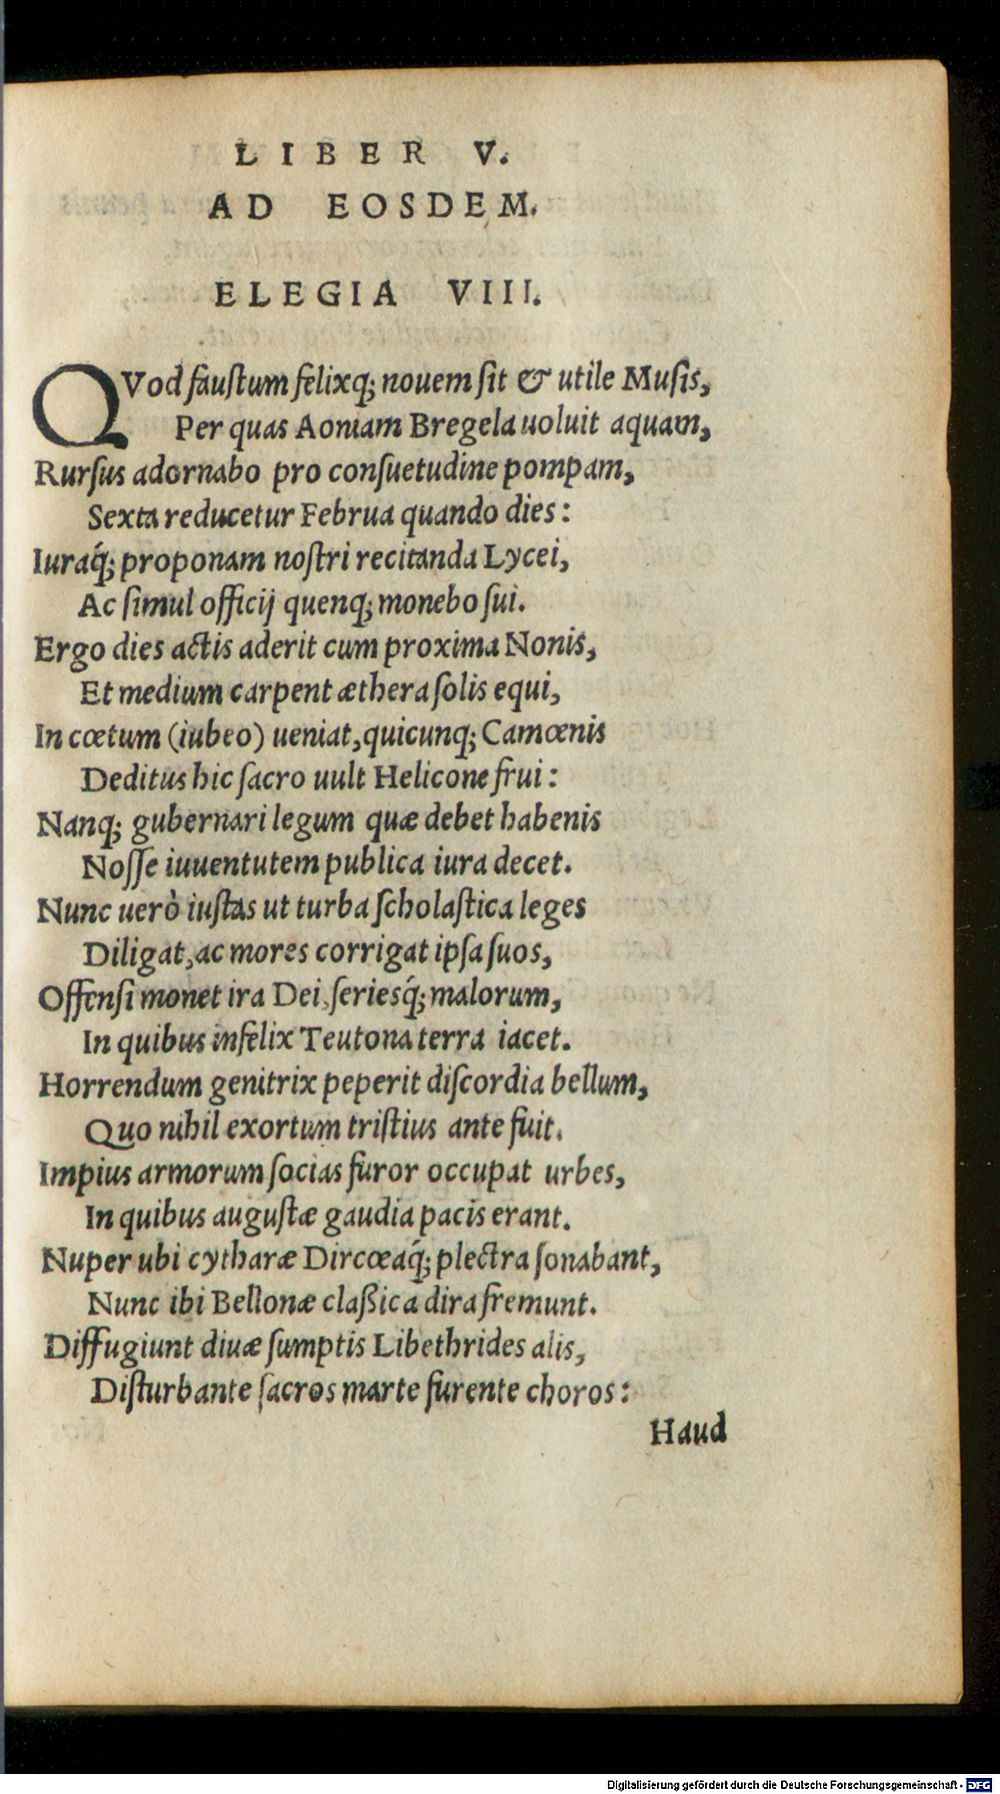 LIBER V.
AD EOSDEM.
ELEGIA VIII.
QVod faustum felixq; nouem sit & utile Musis,
Per quas Aoniam Bregela uoluit aquam,
Rursus adornabo pro consuetudine pompam,
Sexta reducetur Februa quando dies:
Iuraq́; proponam nostri recitanda Lycei,
Ac simul officij quenq; monebo sui.
Ergo dies actis aderit cum proxima Nonis,
Et medium carpent æthera solis equi,
In cœtum (iubeo) ueniat, quicunq; Camœnis
Deditus hic sacro uult Helicone frui:
Nanq; gubernari legum quæ debet habenis
Nosse iuuentutem publica iura decet.
Nunc uerò iustas ut turba scholastica leges
Diligat, ac mores corrigat ipsa suos,
Offensi monet ira Dei, seriesq́; malorum,
In quibus infelix Teutona terra iacet.
Horrendum genitrix peperit discordia bellum,
Quo nihil exortum tristius ante fuit.
Impius armorum socias furor occupat urbes,
In quibus augustæ gaudia pacis erant.
Nuper ubi cytharæ Dircœaq́; plectra sonabant,
Nunc ibi Bellonæ claßica dira fremunt.
Diffugiunt diuæ sumptis Libethrides alis,
Disturbante sacros marte furente choros:
Haud
Digitalisierung gefördert durch die Deutsche Forschungsgemeinschaft - DFG